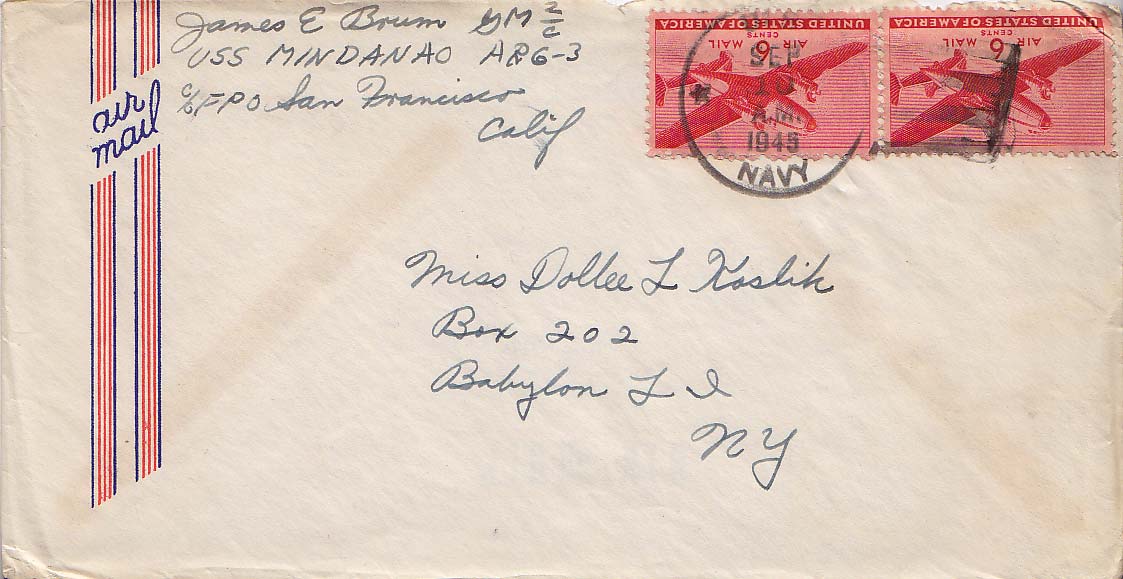 James E Brum GM 2/c
USS MINDANAO ARG-3
c/o FPO San Francisco
Calif
air
mail
UNITED STATES OF AMERICA
AIR 6 MAIL
CENTS
UNITED STATES OF AMERICA
AIR 6 MAIL
CENTS
SEP
A.M.
1945
NAVY
Miss Dollee L Koslik
Box 202
Babylon L I
NY